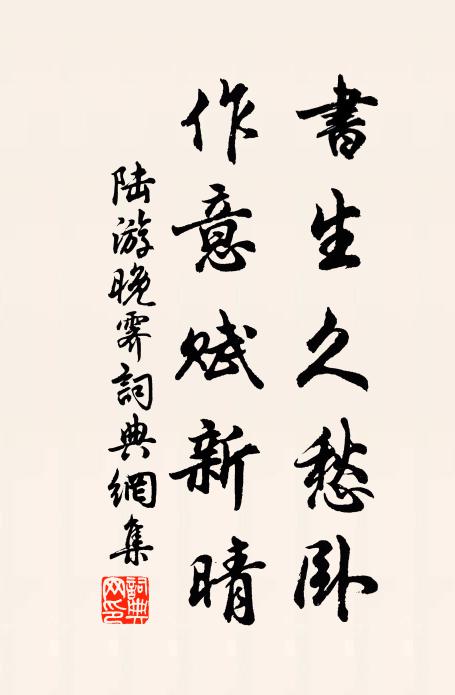 書生久愁臥
作意賦新晴
陸游晚霽詞典網集
詞典网印